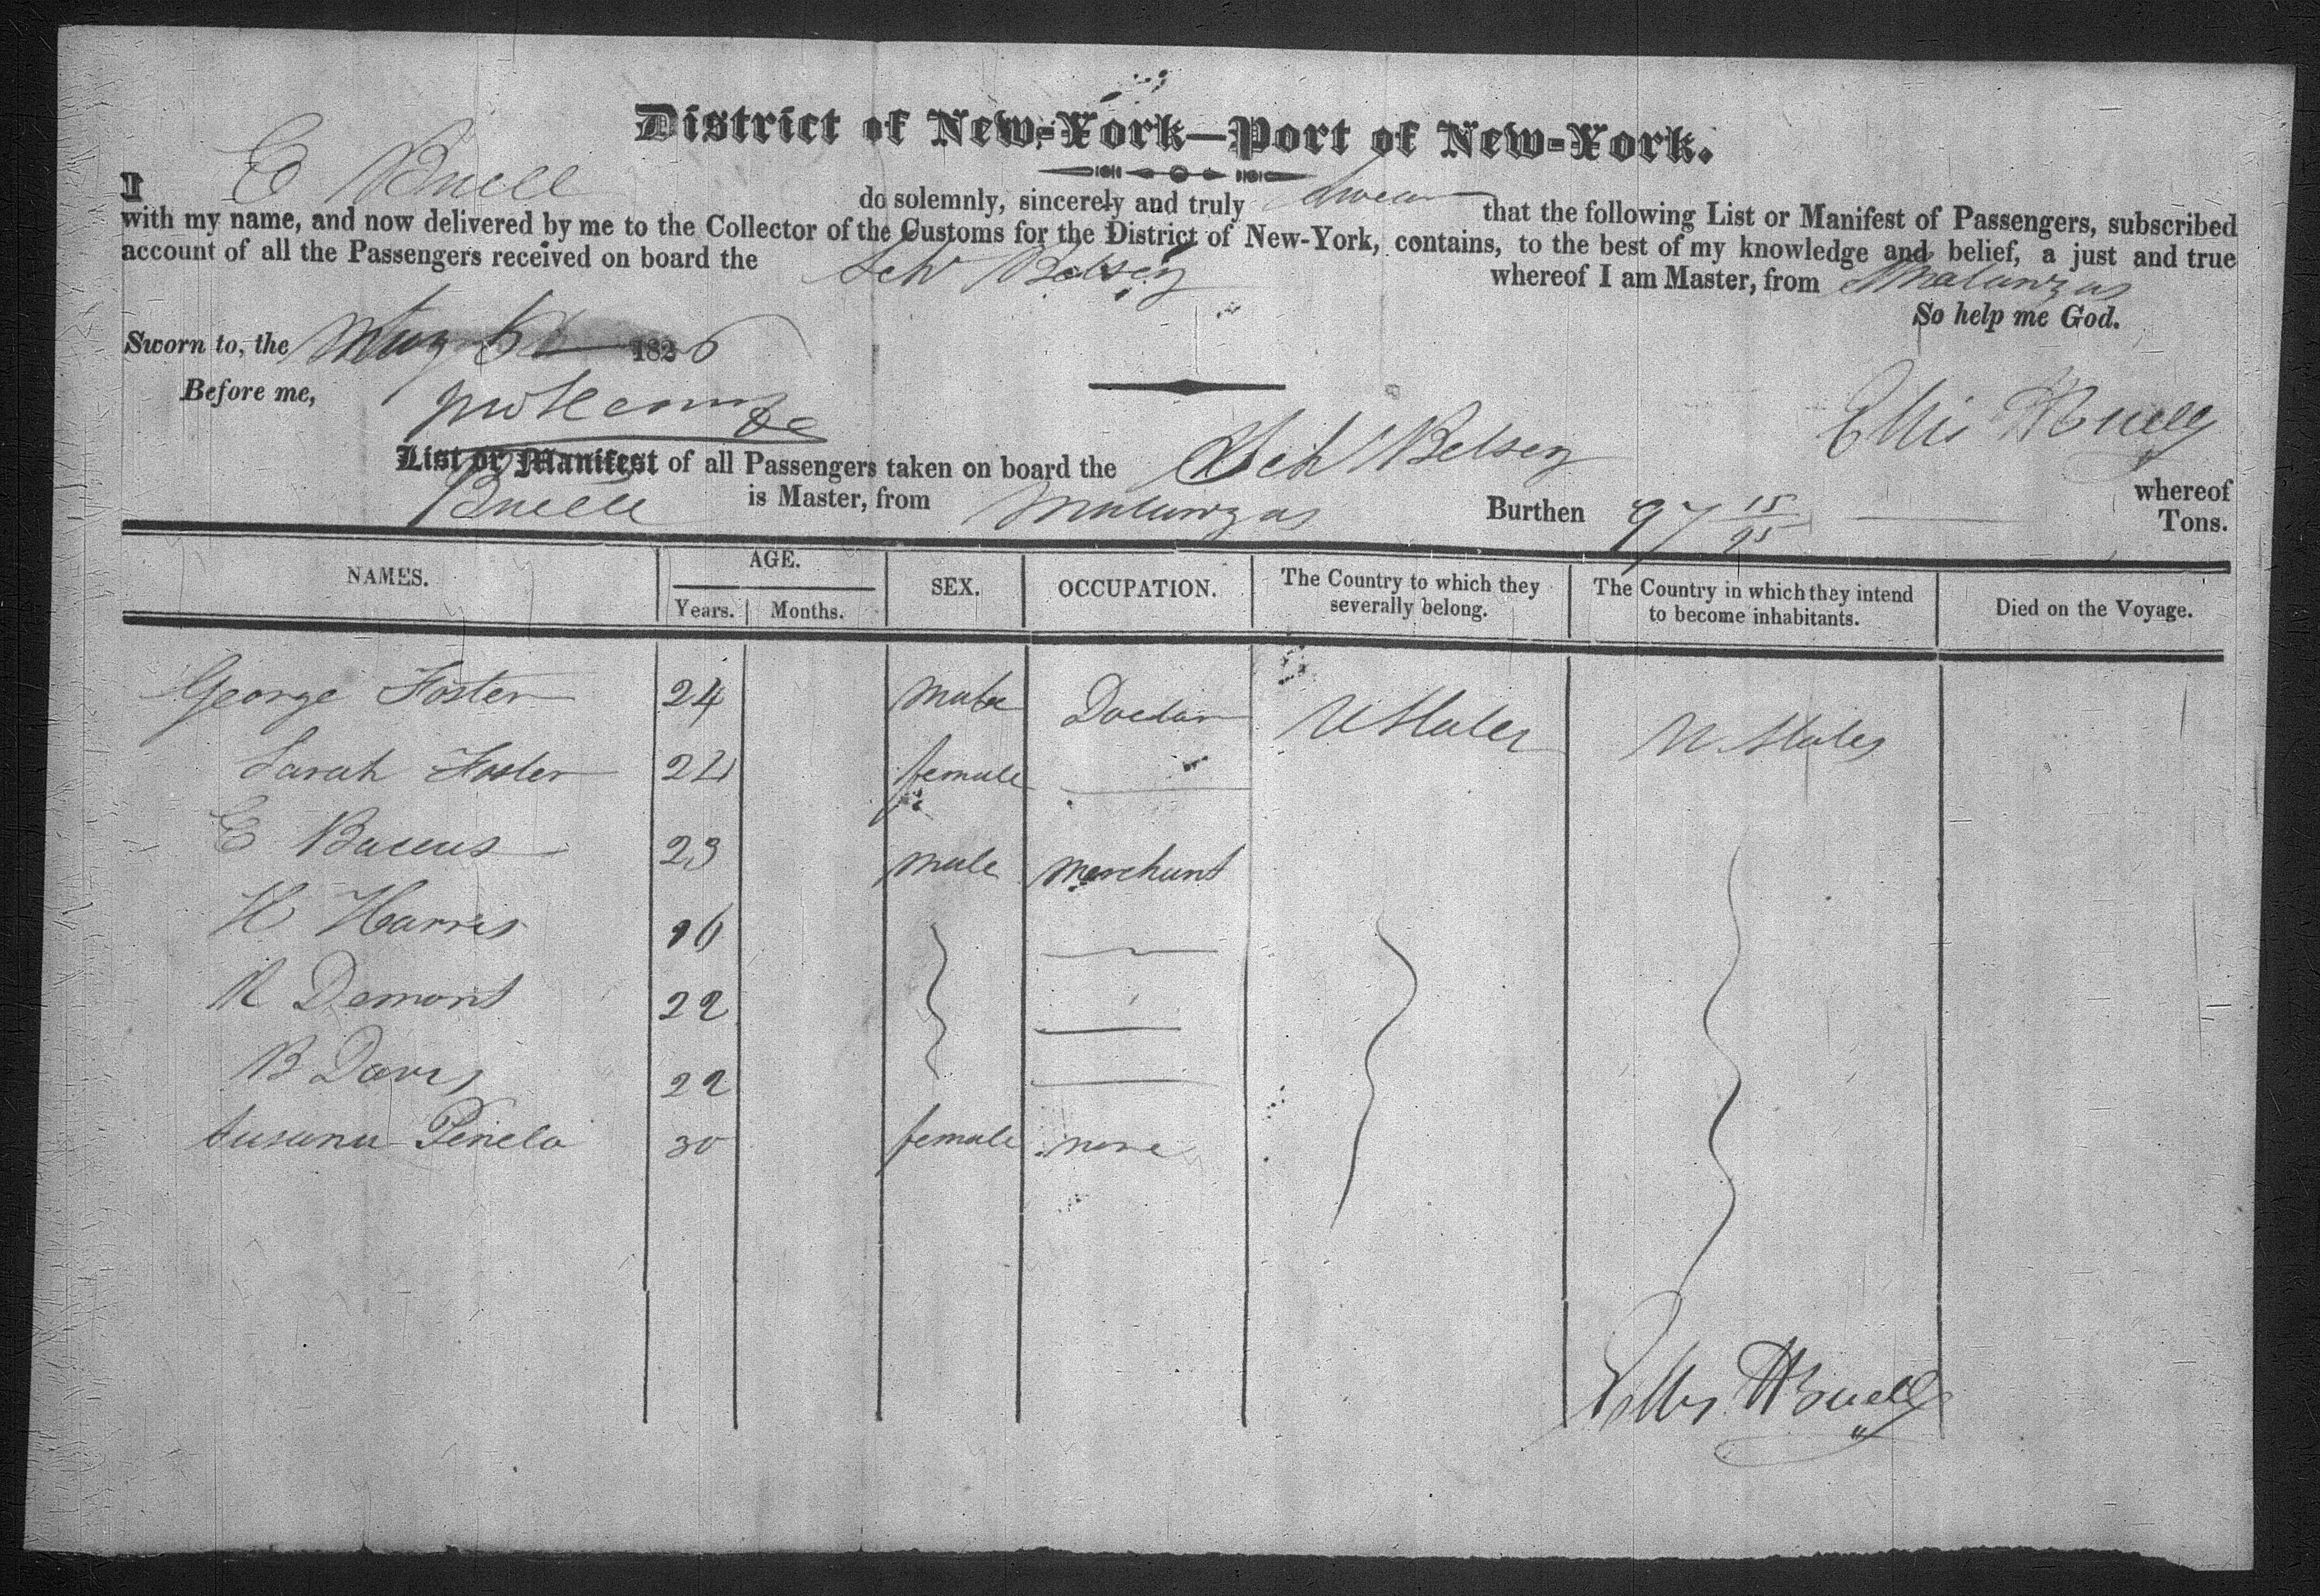 District of New-York—Port of New-York.
I E Buell do solemnly, sincerely and truly swear that the following List or Manifest of Passengers, subscribed
with my name, and now delivered by me to the Collector of the Customs for the District of New-York, contains, to the best of my knowledge and belief, a just and true
account of all the Passengers received on board the Sch Betsey whereof I am Master, from Matanzas
So help me God.
Sworn to, the May 1826
Before me,
Ellis Buell
List or Manifest of all Passengers taken on board the Sch Betsey whereof
Buell is Master, from Matanzas Burthen 97 15/95 Tons.
NAMES. AGE. SEX. OCCUPATION. The Country to which they severally belong. The Country in which they intend to become inhabitants. Died on the Voyage.
Years. Months.
George Foster 24 male Doctor U States U. States
Sarah Foster 24 female
E Baccus 23 male merchant
H Harris 16
R Demont 22
B Davis 22
Susana Penela 30 female none
Ellis Buell